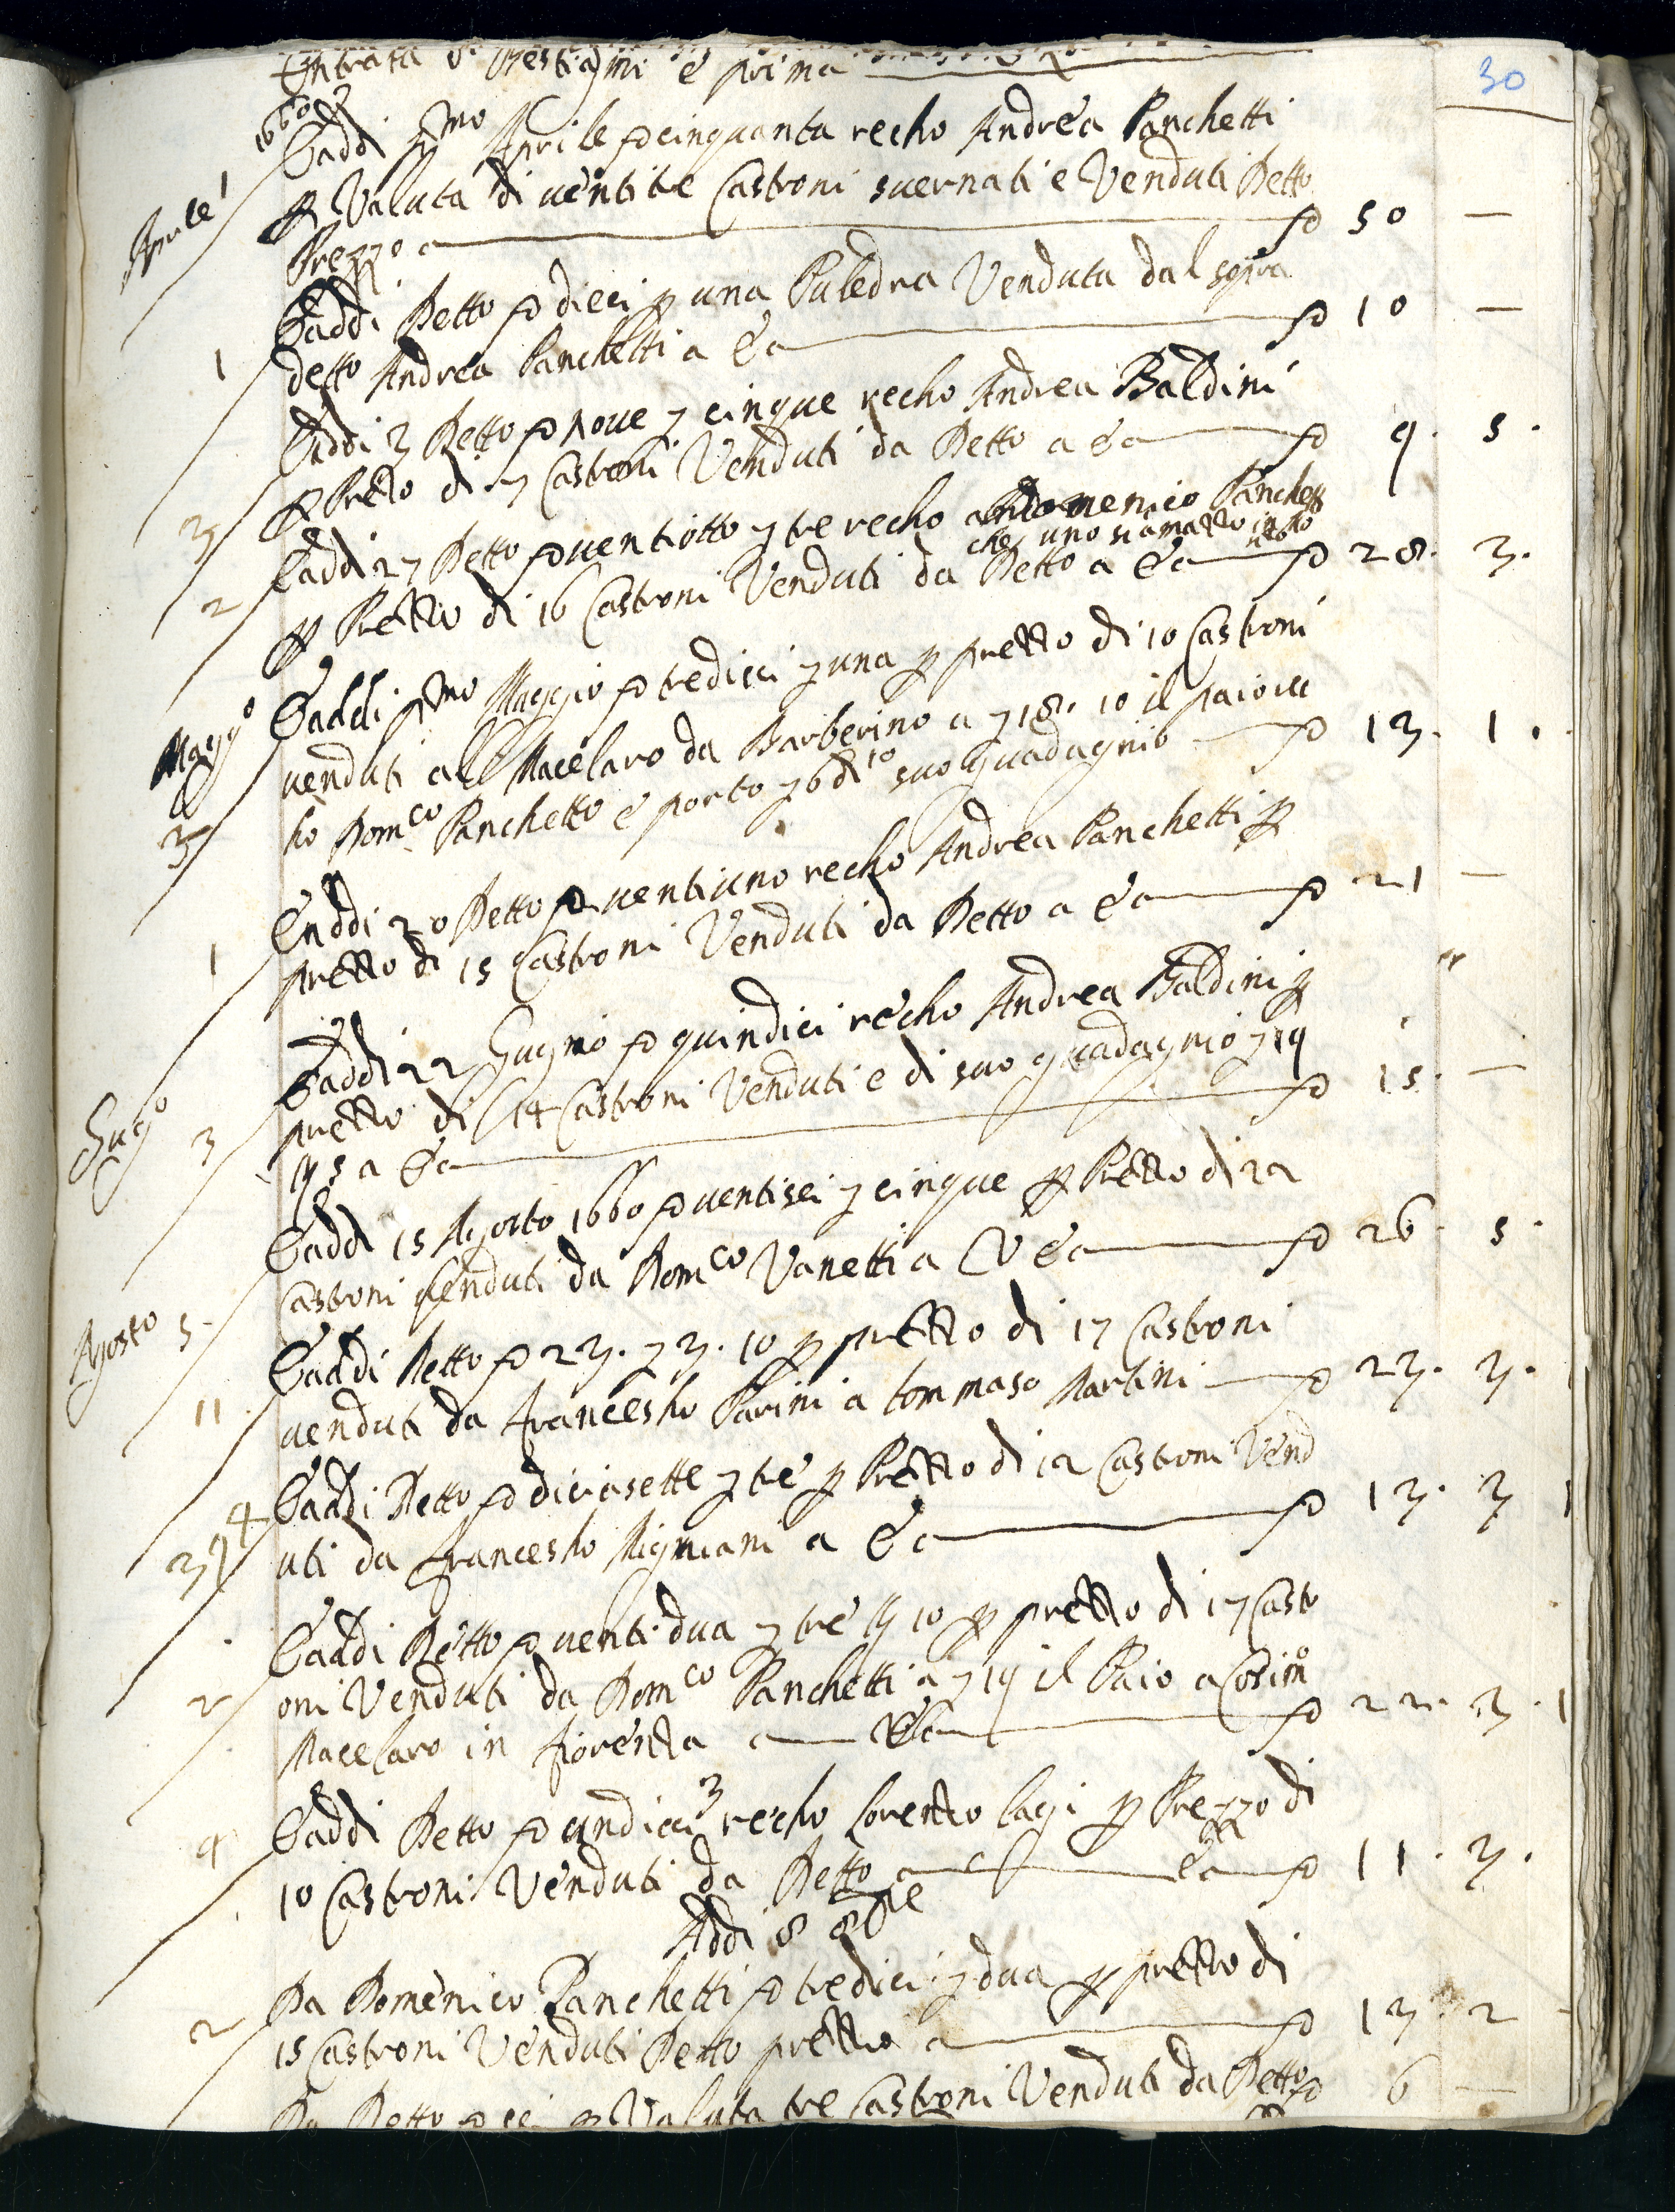 30
Entrata di Bestiami e prima
1660
Aprile
E addi pmo Aprile ꝭ cinquanta recho Andrea Panchetti
ꝑ Valuta di uentitre Castroni suernati e Venduti Detto
Prezzo a ꝭ 50 —
1 E addi Detto ꝭ dieci ꝑ una Puledra Venduta dal sopra
detto Andrea Panchetti a Ea ꝭ 10 —
3 E addi 3 Detto ꝭ noue ʒ cinque recho Andrea Baldini
ꝑ Pretto di 7 Castroni Venduti da Detto a Ea ꝭ 9. 5.
2 E addi 27 Detto ꝭ uentiotto ʒ tre recho Domenico Panchetti
che uno si amatto in
ꝑ Pretto di 16 Castroni Venduti da Detto a Ea ꝭ 28. 3.
Maggo
3 E addi pmo Maggio ꝭ tredici ʒ una ꝑ pretto di 10 Castroni
uenduti all Macelaro da Barberino a ʒ 18. 10 il paio re
ho Domco Panchetto e porto ʒ 6 di suo guadagnio ꝭ 13. 1.
1 E addi 20 Detto ꝭ uentiuno recho Andrea Panchetti ꝑ
pretto di 15 Castroni Venduti da Detto a Ea ꝭ 21 —
Gugo
3 E addi 22 Gugnio ꝭ quindici recho Andrea Baldini ꝑ
pretto di 14 Castroni Venduti e di suo guadagnio ʒ 19
5 a Ea ꝭ 15. —
Agosto
5 E addi 15 Agosto 1660 ꝭ uentisei ʒ cinque ꝑ Pretto di 22
Castroni Venduti da Domco Vanetti a Ea ꝭ 26. 5.
11 E addi Detto ꝭ 23. ʒ 3. 10 ꝑ pretto di 17 Castroni
uenduti da francesho Parini a tommaso Martini ꝭ 23. 3.
4 E addi Detto ꝭ diciasette ʒ tre ꝑ Pretto di 12 Castroni Vend
uti da francesho Migniani a Ea ꝭ 13. 3
2 E addi Detto ꝭ uentidua ʒ tre 10 ꝑ pretto di 17 Castr
oni Venduti da Domco Panchetti a ʒ 19 il Paio a Cosimo
Macelaro in fiorentta a Ea ꝭ 22. 3. 1
9 E addi Detto ꝭ undici 3 recho Lorentto lagi ꝑ Prezzo di
10 Castroni Venduti da Detto a Ea ꝭ 11. 3.
Addi 8 8bre
2 Da Domenico Panchetti ꝭ tredici ʒ dua ꝑ pretto di
15 Castroni Venduti Detto pretto a ꝭ 13. 2
Da Detto ꝭ sei ꝑ Valuta tre Castroni Venduti da Detto ꝭ 6 —